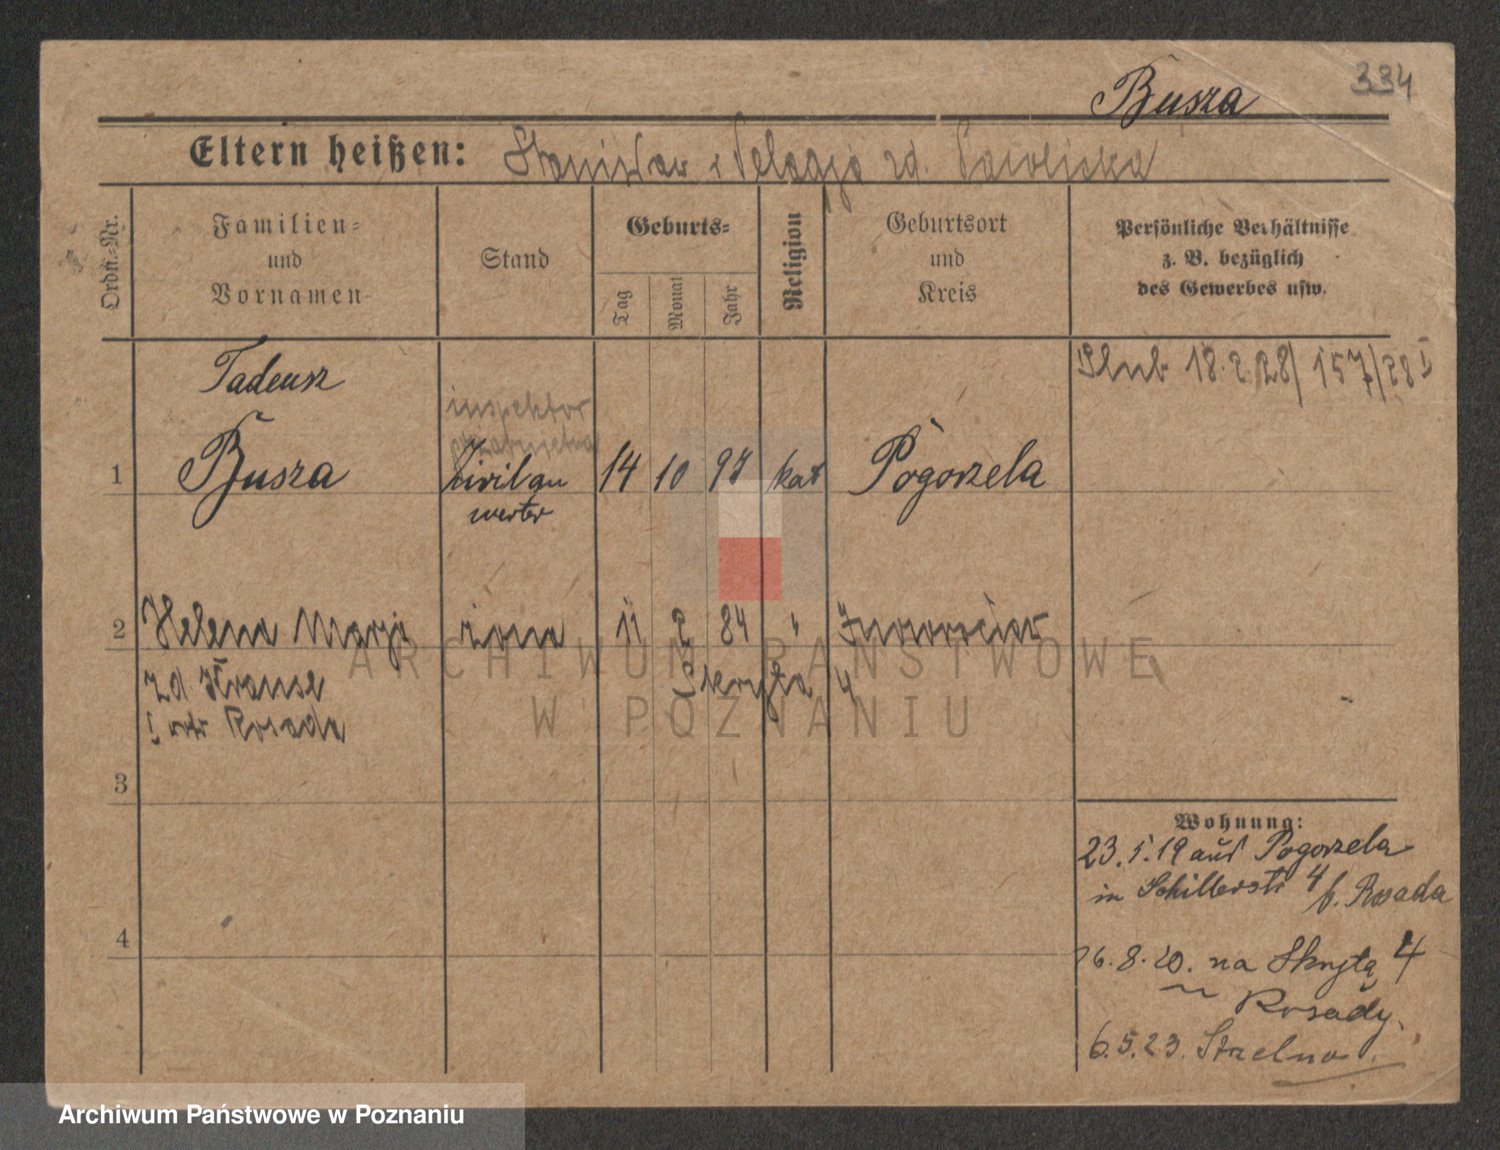 334
Busza
Eltern heißen: Stanisław i Pelagja zd.
Ordn.-Nr.
Familien-
und
Vornamen
Stand
Geburts-
Tag
Monat
Jahr
Religion
Geburtsort
und
Kreis
Persönliche Verhältnisse
z. B. bezüglich
des Gewerbes usw.
Ślub 18.2.28/157/28 I
Tadeusz
inspektor
1 Busza Zivilan 14 10 97 kat Pogorzela
werter
2 Helena Marja żona 11 2 84 "
zd Krause Skryta 4
Rosada
3
4
Wohnung:
23.5.19 aus Pogorzela
in Schillerstr 4 b. Rosada
26.8.20. na Skrytą 4
Rosady.
6.5.23. Strzelno.
ARCHIWUM PAŃSTWOWE
W POZNANIU
Archiwum Państwowe w Poznaniu